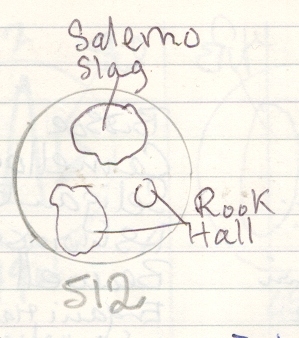 Salerno
Slag
Rook
Hall
512